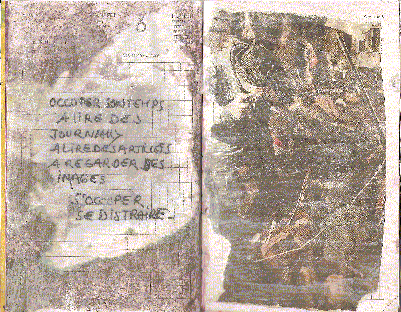 OCCUPER SON TEMPS
A LIRE DES
JOURNAUX
A LIRE DES ARTICLES
A REGARDER DES
IMAGES
S'OCCUPER
SE DISTRAIRE_